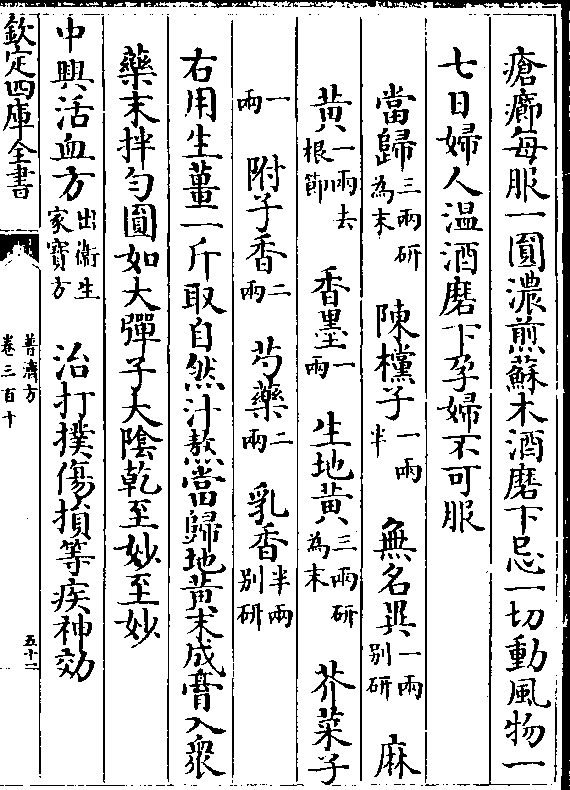 瘡癤每服一圓濃煎蘇木酒磨下忌一切動風物一
七日婦人温酒磨下孕婦不可服
當歸三兩研為末 陳欓子一兩半 無名異一兩别研 麻
黄一兩去根節 香墨一兩 生地黄三兩研為末 芥菜子
一兩 附子香二兩 芍藥二兩 乳香半兩别研
右用生薑一斤取自然汁熬當歸地黄末成膏入衆
藥末拌勻圓如大彈子大陰乾至妙至妙
中興活血方出衛生家寶方 治打撲傷損等疾神効
欽定四庫全書
普濟方
卷三百十
五十二